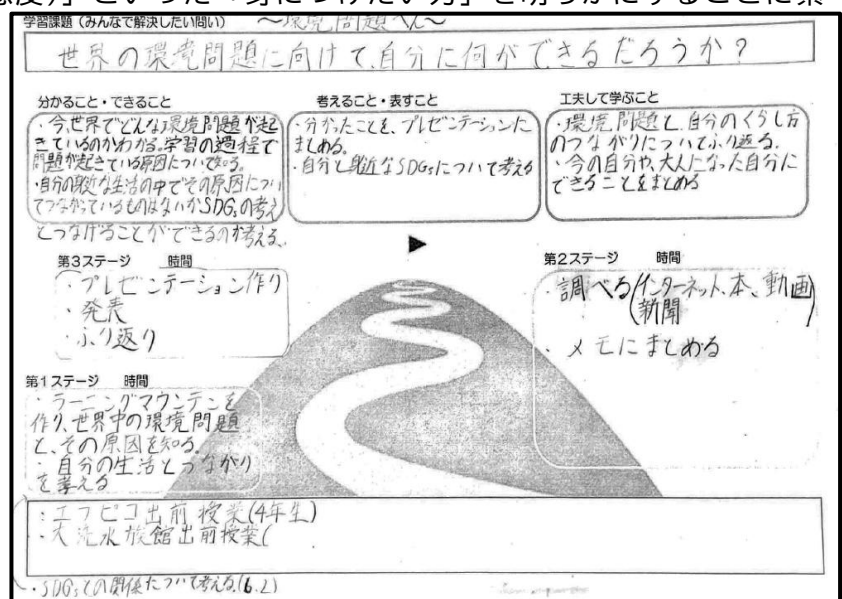 といった「身につけたい力」を明らかにすることに
学習課題（みんなで解決したい問い）　〜環境問題へん〜
世界の環境問題に向けて、自分に何ができるだろうか？
分かること・できること
・今、世界でどんな環境問題が起
きているのかわかる。学習の過程で
問題が起きている原因について知る。
・自分の身近な生活の中でその原因につい
てつながっているものはないかSDGsの考え
とつなげることができるのか考える。
考えること・表すこと
・分かったことを、プレゼンテーションに
まとめる。
・自分と身近なSDGsについて考える
工夫して学ぶこと
・環境問題と、自分のくらし方
のつながりについてふり返る。
・今の自分や、大人になった自分に
できることをまとめる
第3ステージ　時間
・プレゼンテーション作り
・発表
・ふり返り
第2ステージ　時間
・調べる(インターネット、本、動画)
(新聞
・メモにまとめる
第1ステージ　時間
・ラーニングマウンテンを
作り、世界中の環境問題
と、その原因を知る。
・自分の生活とつながり
を考える
・エフピコ出前授業(4年生)
・大洗水族館出前授業(
・SDGsとの関係について考える(6.2)